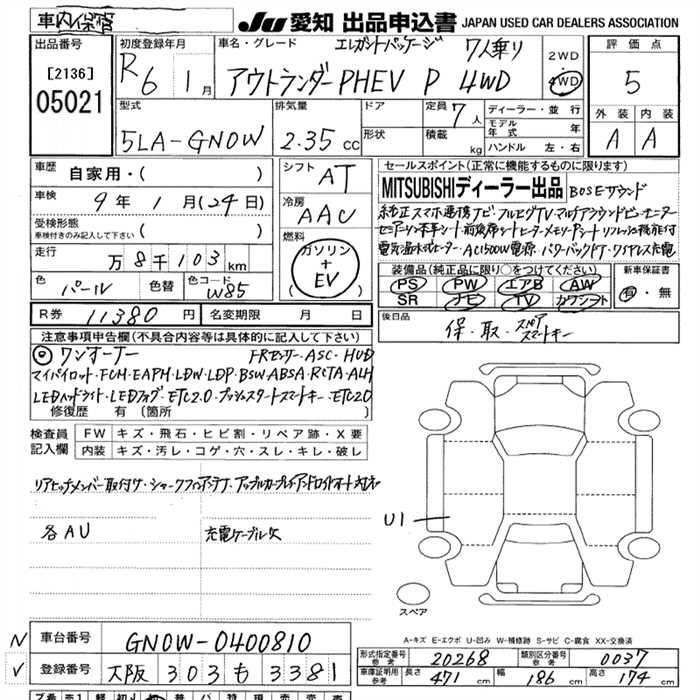 車内保管
JU 愛知 出品申込書 JAPAN USED CAR DEALERS ASSOCIATION
出品番号
[2136]
05021
初度登録年月
R6 1月
車名・グレード エレガントパッケージ 7人乗り
アウトランダーPHEV P 4WD
2WD
4WD
評価点
5
外装 内装
A A
型式
5LA-GN0W
排気量
2.35 cc
ドア
形状
定員 7人
積載 kg
ディーラー・並行
モデル年式 年
ハンドル 左・右
車歴 自家用・( )
車検 9年 1月 (24日)
受検形態
車検付きのみ記入して下さい ( )
走行 万 8千 103 km
色 パール 色替 色コード W85
R券 11380 円 名変期限 月 日
シフト AT
冷房 AAC
燃料
ガソリン
+
EV
( )
セールスポイント(正常に機能するものに限ります)
MITSUBISHIディーラー出品 BOSEサウンド
純正スマホ連携ナビ フルセグTV マルチアラウンドビューモニター
セミアニリン本革シート 前後席シートヒーター メモリーシート リフレッシュ機能付
電気温水式ヒーター AC1500W電源 パワーバックドア ワイヤレス充電
装備品(純正品に限り○をつけてください)
PS PW エアB AW
SR ナビ TV カワシート
新車保証書
有・無
後日品
保・取・スペアスマートキー
注意事項申告欄(不具合内容等は具体的に記入して下さい)
◎ワンオーナー FRセンサー・ASC・HUD
マイパイロット・FCM・EAPM・LDW・LDP・BSW・ABSA・RCTA・ALH
LEDヘッドライト・LEDフォグ・ETC2.0・プッシュスタートスマートキー・ETC2.0
修復歴 有 〔箇所
検査員記入欄
FW キズ・飛石・ヒビ割・リペア跡・X要
内装 キズ・汚レ・コゲ・穴・スレ・キレ・破レ
リアヒッチメンバー取付ザ・シャークフィンアンテナ・アップルカープレイアンドロイドオート対応
各AU 充電ケーブル欠
U1
スペア
A-キズ E-エクボ U-凹み W-補修跡 S-サビ C-腐食 XX-交換済
N 車台番号 GN0W-0400810
✓ 登録番号 大阪 303 も 3381
形式指定番号 参考 20268 類別区分番号 参考 0037
車庫証明用 参考 長さ 471 cm 幅 186 cm 高さ 174 cm